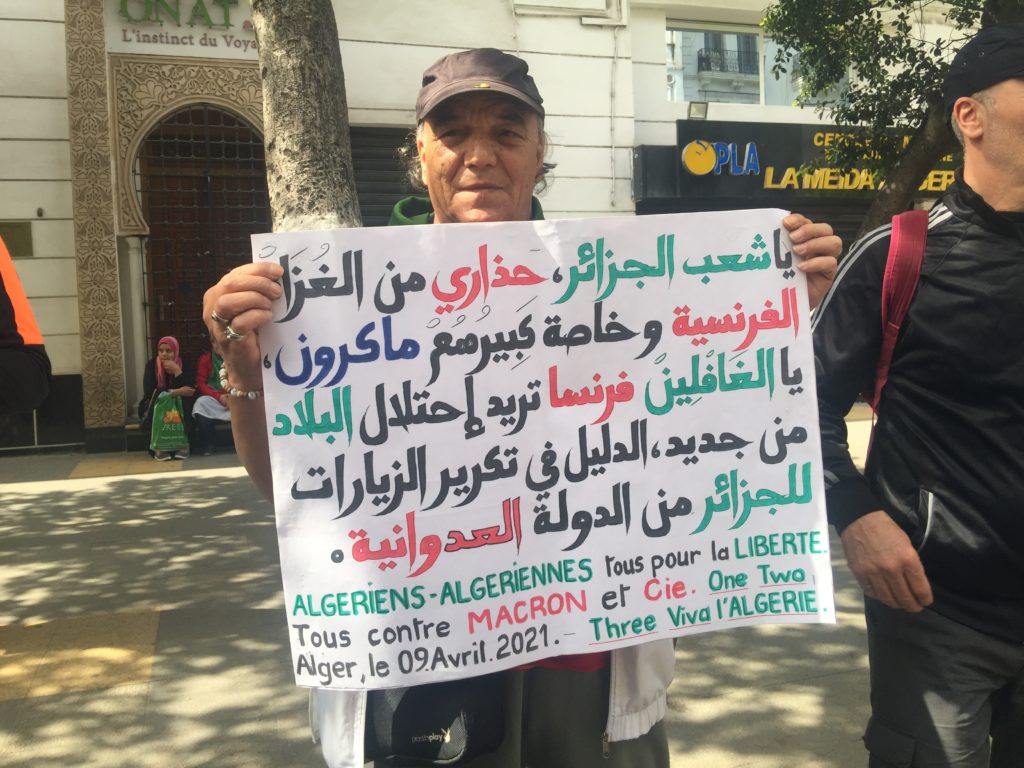 ONAT
L'instinct du Voya
OPLA
LA MEIDA ALGER
يا شعب الجزائر، حَذاري من الغُزَاُ
الفرنسية وخاصة كَبِيرهُمْ ماكرون،
يا الغَافْلِينْ فرنسا تريد إحتلال البلاد
من جديد، الدليل في تكرير الزيارات
للجزائر من الدولة العدوانية.
ALGERIENS-ALGERIENNES tous pour la LIBERTE.
Tous contre MACRON et Cie. One Two
Alger, le 09.Avril.2021.- Three Viva l'ALGERIE.